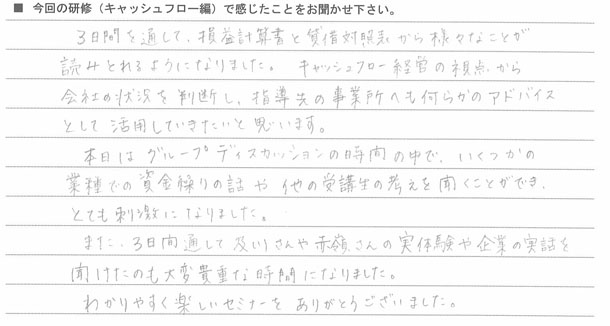 ■ 今回の研修（キャッシュフロー編）で感じたことをお聞かせ下さい。
3日間を通して、損益計算書と貸借対照表から様々なことが
読みとれるようになりました。 キャッシュフロー経営の視点から
会社の状況を判断し、指導先の事業所へも何らかのアドバイス
として活用していきたいと思います。
本日はグループディスカッションの時間の中で、いくつかの
業種での資金繰りの話や他の受講生の考えを聞くことができ、
とても刺激になりました。
また、3日間通して及川さんや赤嶺さんの実体験や企業の実話を
聞けたのも大変貴重な時間になりました。
わかりやすく楽しいセミナーをありがとうございました。